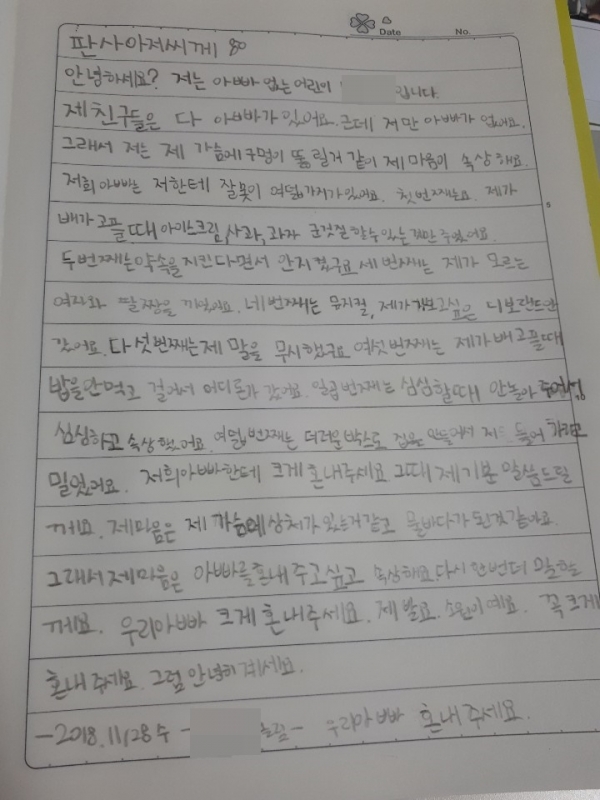 Date No.
판사아저씨께
안녕하세요? 저는 아빠 없는 어린이 입니다.
제 친구들은 다 아빠가 있어요. 근데 저만 아빠가 없어요.
그래서 저는 제 가슴에 구멍이 뚫릴거 같이 제 마음이 속상해요.
저희 아빠는 저한테 잘못이 여덟가지가 있어요. 첫번째는요. 제가
배가 고플때 아이스크림, 사과, 과자 군것질 할 수 있는 것만 주었어요.
두번째는 약속을 지킨다면서 안지켰구요 세번째는 제가 모르는
여자와 팔짱을 끼었어요. 네번째는 뮤지컬, 제가 가보고싶은 디보랜드안
갔어요. 다섯번째는 제 말을 무시했구요 여섯번째는 제가 배고플때
밥을 안먹고 걸어서 어디론가 갔어요. 일곱번째는 심심할때 안놀아주어서
심심하고 속상했어요. 여덟번째는 더러운 박스로 집을 만들어서 저 들어가라고
밀었어요. 저희아빠한테 크게 혼내주세요. 그때 제기분 말씀드릴
께요. 제마음은 제 가슴에 상처가 있는거같고 물바다가 된것같아요.
그래서 제마음은 아빠를 혼내 주고 싶고 속상해요 다시 한번더 말할
께요. 우리아빠 크게 혼내주세요. 제발요. 소원이예요. 꼭 크게
혼내 주세요. 그럼 안녕히 계세요.
-2018.11.28 수 - 올림- 우리아빠 혼내 주세요.